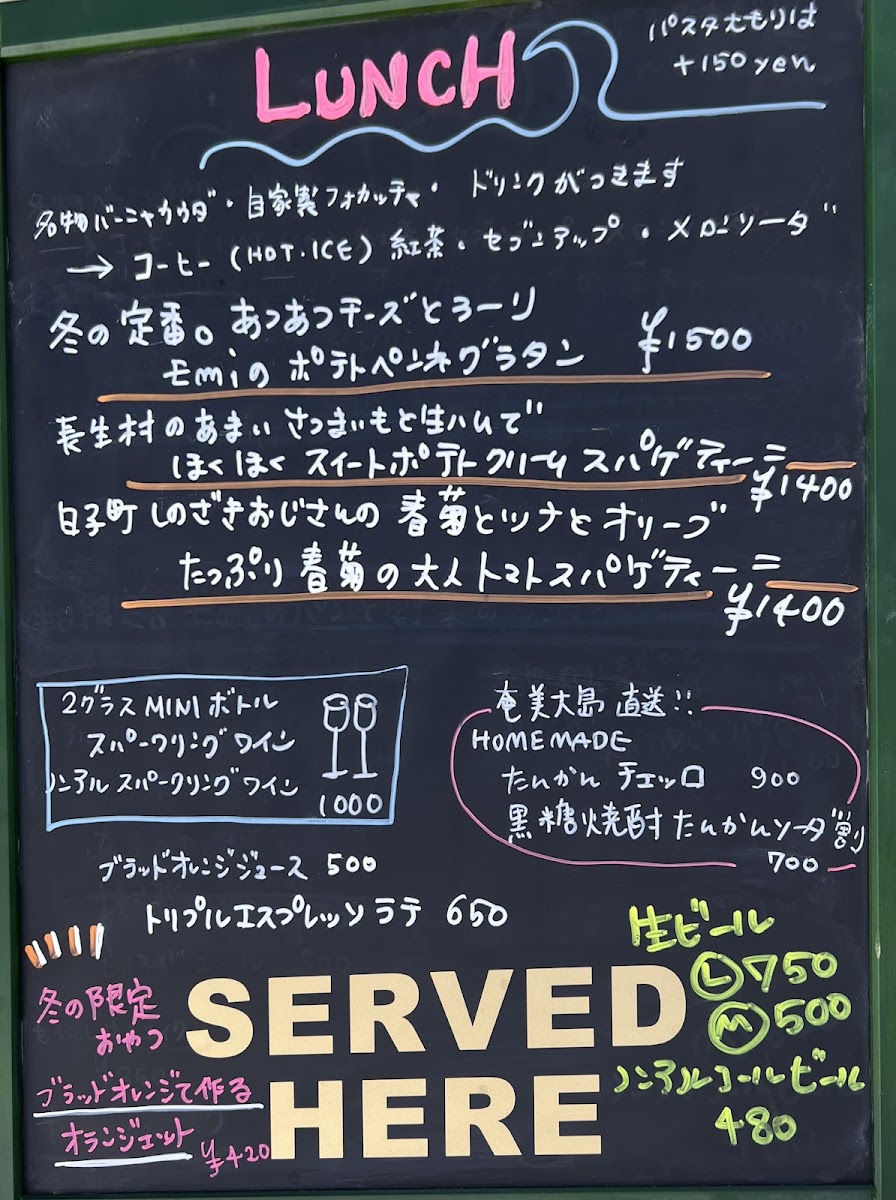 LUNCH
パスタ大もりは
+150yen
名物バーニャカウダ・自家製フォカッチャ・ドリンクがつきます
→ コーヒー(HOT・ICE) 紅茶・セブンアップ・メロンソーダ
冬の定番。あつあつチーズとろーり
Emiの ポテトペンネグラタン ¥1500
長生村のあまい さつまいもと生ハムで
ほくほく スイートポテトクリーム スパゲティーニ
¥1400
白子町 しのざきおじさんの 春菊とツナとオリーブ
たっぷり 春菊の大人トマトスパゲティーニ
¥1400
2グラス MINI ボトル
スパークリング ワイン
ノンアル スパークリング ワイン
1000
奄美大島 直送!!
HOMEMADE
たんかん チェッロ 900
黒糖焼酎 たんかんソーダ割り
700
ブラッドオレンジジュース 500
トリプルエスプレッソ ラテ 650
生ビール
L 750
M 500
ノンアルコールビール
480
冬の限定
おやつ
ブラッドオレンジで作る
オランジェット ¥420
SERVED
HERE